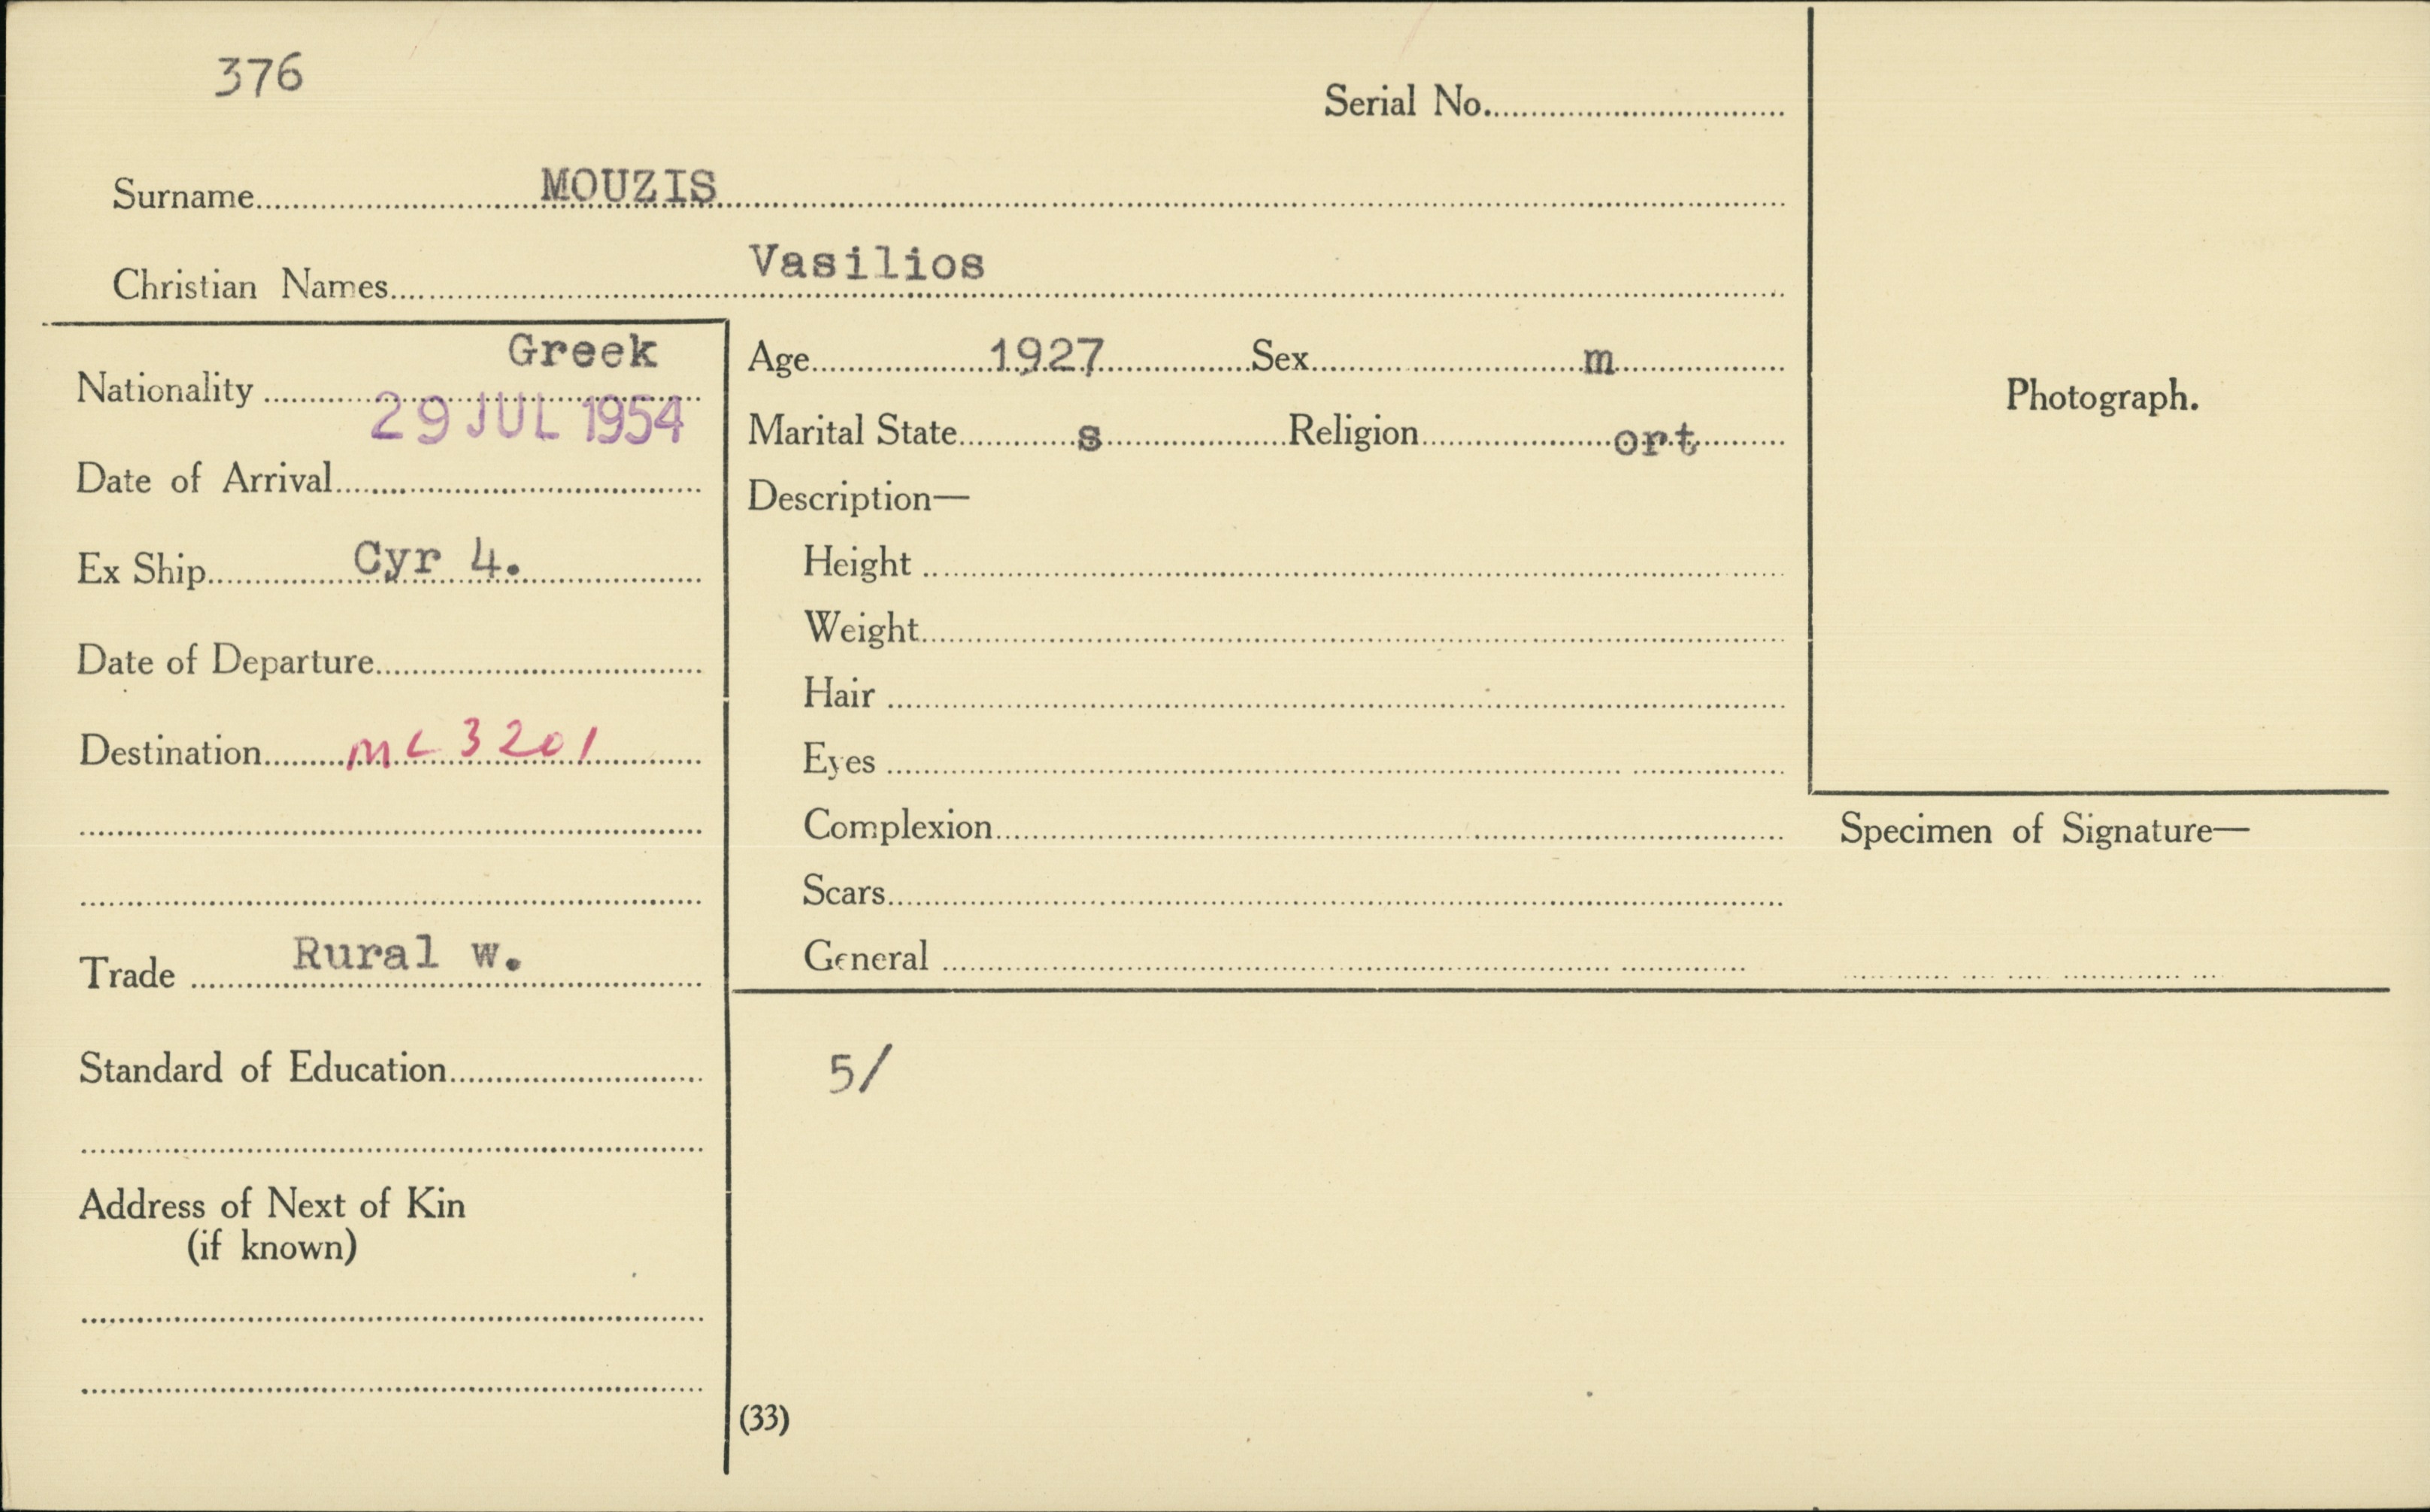 376
Serial No.
Surname MOUZIS
Christian Names Vasilios
Nationality Greek
29 JUL 1954
Date of Arrival
Ex Ship Cyr 4.
Date of Departure
Destination MC 3201
Trade Rural w.
Standard of Education
Address of Next of Kin
(if known)
Age 1927 Sex m
Marital State s Religion ort
Description—
Height
Weight
Hair
Eyes
Complexion
Scars
General
5/
(33)
Photograph.
Specimen of Signature—